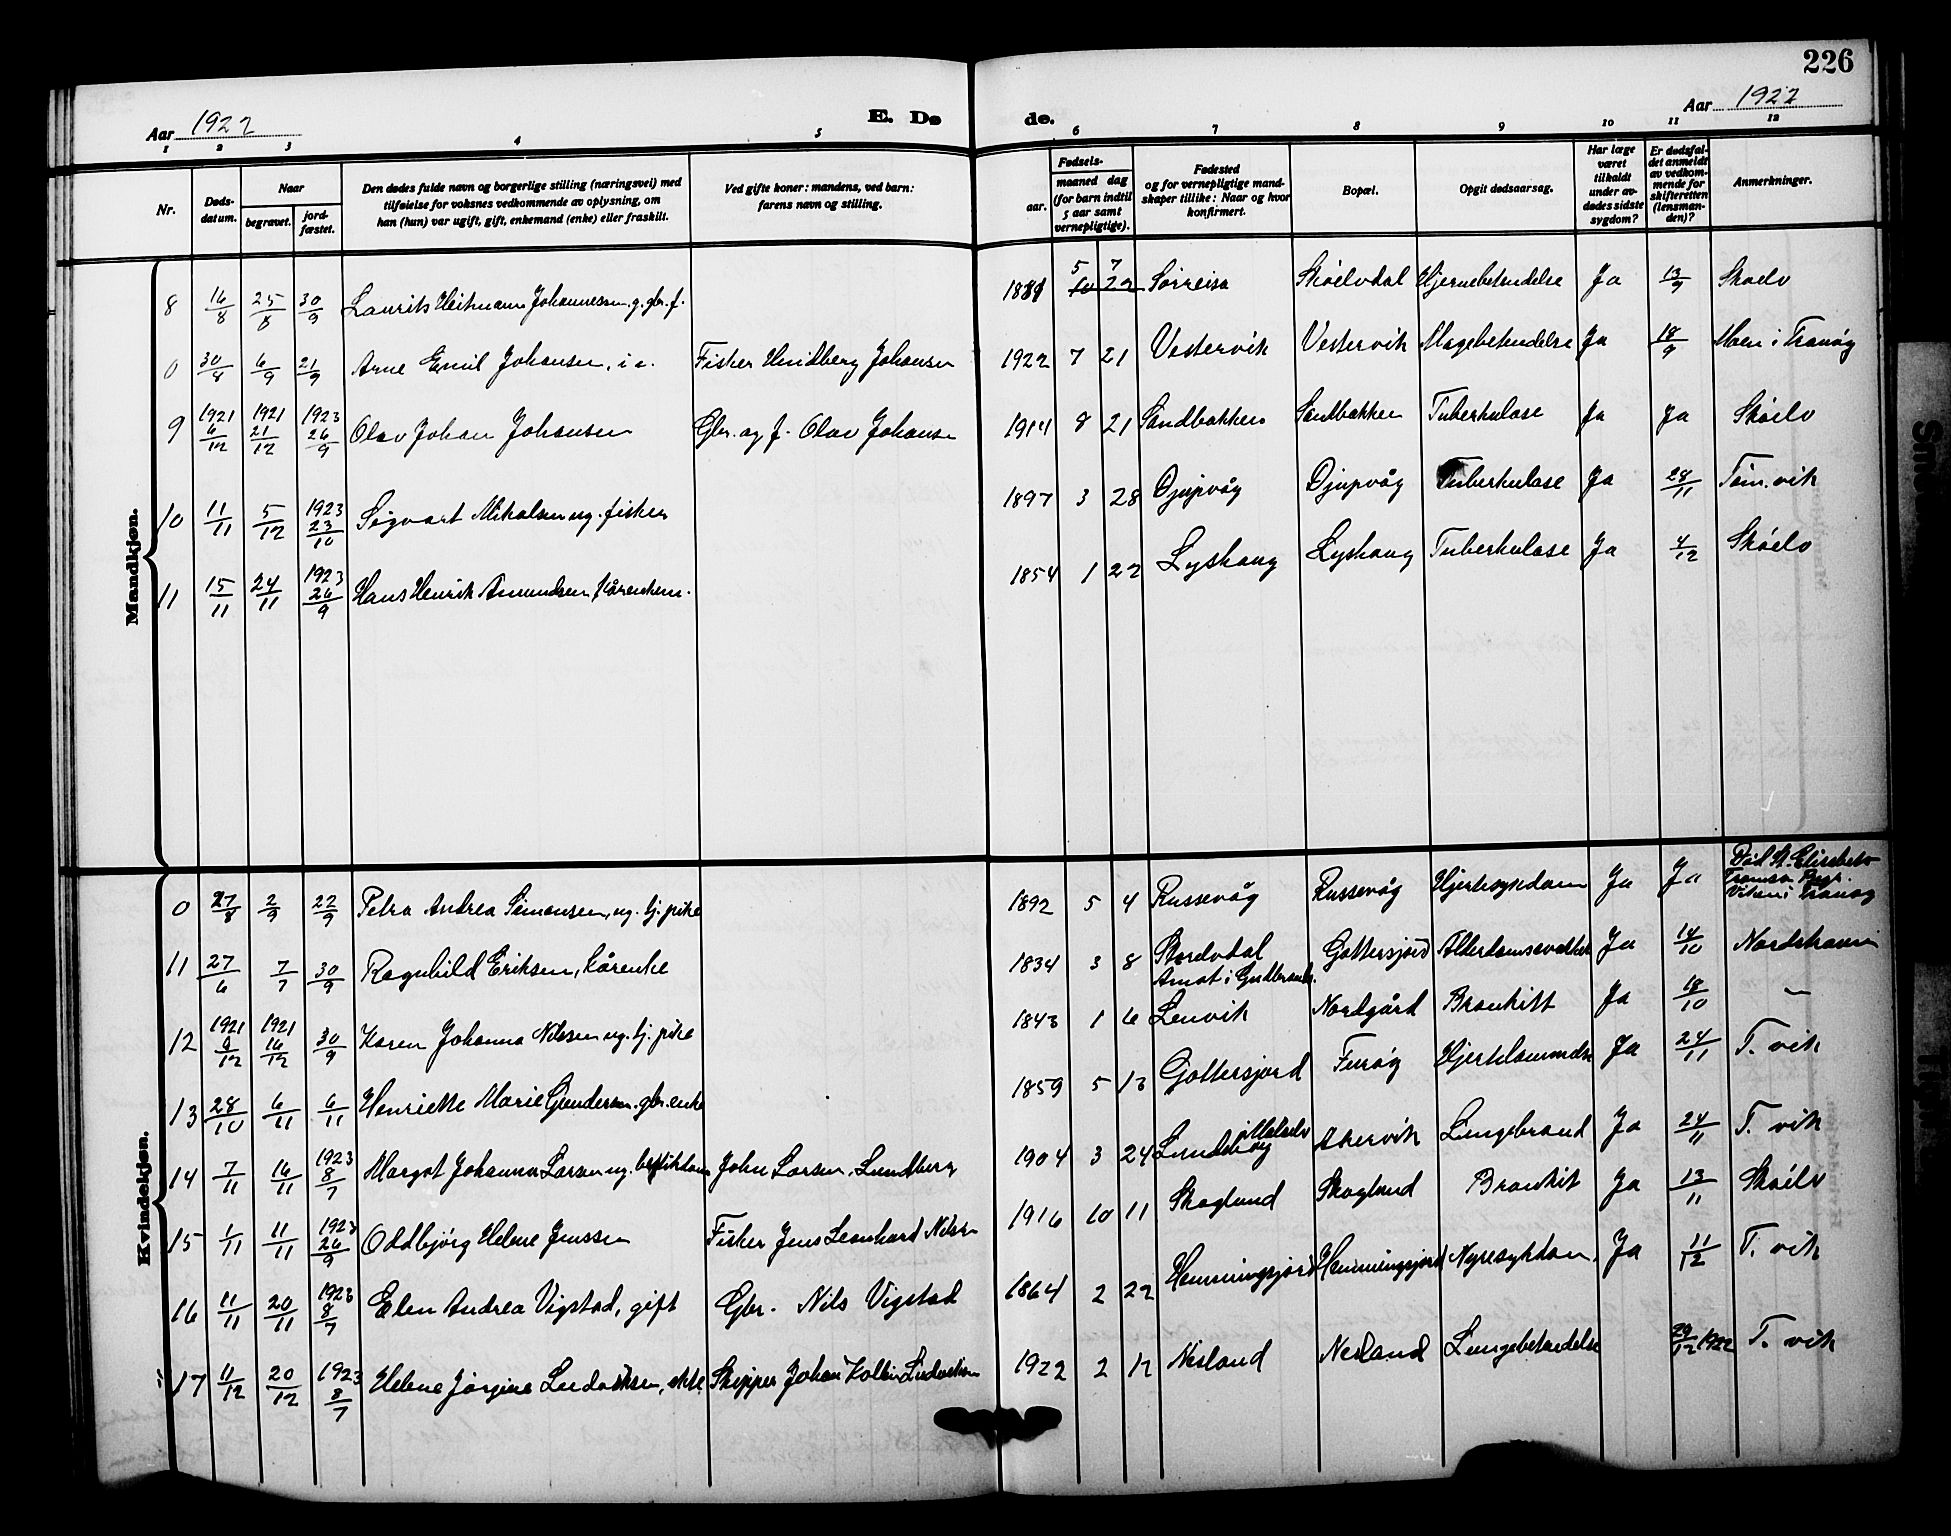 226
Aar 1922
E. Dø
de.
Aar 1922
1 2 3 4 5 6 7 8 9 10 11 12
Nr.
Døds-
datum.
Naar
begravet.
jord-
fæstet.
Den dødes fulde navn og borgerlige stilling (næringsvei) med
tilføielse for voksnes vedkommende av oplysning, om
han (hun) var ugift, gift, enkemand (enke) eller fraskilt.
Ved gifte koner: mandens, ved barn:
farens navn og stilling.
Fødsels-
aar.
maaned dag
(for barn indtil
5 aar samt
vernepligtige).
Fødested
og for vernepligtige mand-
skaper tillike: Naar og hvor
konfirmert.
Bopæl.
Opgit dødsaarsag.
Har læge
været
tilkaldt
under av-
dødes sidste
sygdom?
Er dødsfal-
det anmeldt
av vedkom-
mende for
skifteretten
(lensman-
den)?
Anmerkninger.
Mandkjøn.
8 16/8 25/8 30/9 Laurits Heitmann Johannessen, g. gbr. f. 1881 5 7 10 22 Sørreisa Skøelvdal Hjernebetendelse Ja 13/9 Skøelv
0 30/8 6/9 21/9 Arne Emil Johansen, Fisker Hindberg Johansen 1922 7 21 Vestervik Vestervik Magebetendelse Ja 18/9 Moen i Tranøy
9 1921 6/12 1921 21/12 1923 26/9 Olav Johan Johansen Gbr. og f. Olav Johanse 1914 8 21 Sandbakken Sandbakken Tuberkulose Ja Ja Skøelv
10 11/11 5/12 1923 23/10 Sigvart Mikalsen ug. fisker 1897 3 28 Djupvåg Djupvåg Tuberkulose Ja 28/11 Tøm.vik
11 15/11 24/11 1923 26/9 Hans Henrik Amundsen kårenkem. 1854 1 22 Lyshaug Lyshaug Tuberkulose Ja 4/12 Skøelv
Kvindekjøn.
0 27/8 2/9 22/9 Petra Andrea Simonsen, ug. tj. pike 1892 5 4 Russevåg Russevåg Hjertesykdom Ja Ja Død St. Elisabets
Tromsø Begr.
Viken i Tranøy
11 27/6 7/7 30/9 Ragnhild Eriksen, kårenke 1834 3 8 Stordvdal
Amot i Gudbrands. Gottersjord Alderdomssvakhet Ja 14/10 Nordstraum
12 1921 9/12 1921 16/12 30/9 Karen Johanna Nilssen ug. tj. pike 1843 1 6 Lenvik Nordgård Bronkitt Ja 18/10 –
13 28/10 6/11 6/11 Henriette Marie Gundersen gbr. enke 1859 5 13 Gottersjord Finnøy Hjertelammelse Ja 24/11 T. vik
14 7/11 16/11 1923 8/7 Margot Johanna Larsen ug. John Larsen, Lundberg 1904 3 24 Lundberg Akervik Lungebrand Ja 24/11 T. vik
15 1/11 11/11 1923 26/9 Oddbjørg Helene Jenssen Fisker Jens Leonhard Nilsen 1916 10 11 Skoglund Skoglund Bronkit Ja 13/11 Skøelv
16 11/11 20/11 1923 8/7 Elen Andrea Vigstad, gift Gbr. Nils Vigstad 1864 2 22 Hemmingsjord Hemmingsjord Nyresykdom Ja 11/12 T. vik
17 11/12 20/12 1923 8/7 Helene Jørgine Ludviksen, ekte Skipper Johan Kolbin Ludviksen 1922 2 12 Nesland Nesland Lungebetendelse 29/12 1922 T. vik